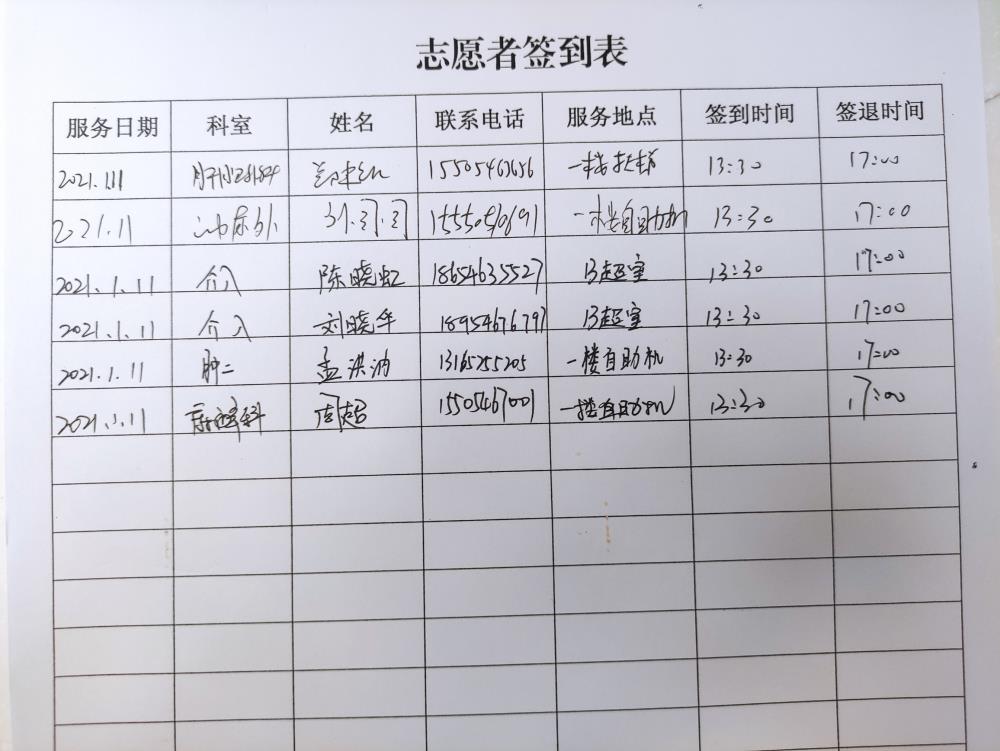 志愿者签到表
服务日期 科室 姓名 联系电话 服务地点 签到时间 签退时间
2021.1.11 15505463656 一楼扶梯 13:30 17:00
2021.11 泌尿外 一楼自助机 13:30 17:00
2021.1.11 介入 陈晓虹 18654635527 B超室 13:30 17:00
2021.1.11 介入 刘晓华 18954676797 B超室 13:30 17:00
2021.1.11 肿二 孟洪油 13165255205 一楼自助机 13:30 17:00
2021.1.11 周超 15505467001 一楼自助机 13:30 17:00